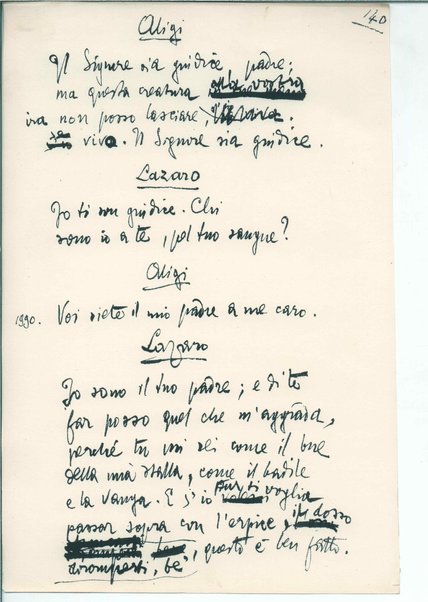 140
Aligi
Il Signore sia giudice, padre;
ma questa creatura alla vostra
ira non posso lasciare,
se vivo. Il Signore sia giudice.
Lazaro
Io ti son giudice. Chi
sono io a te, pel tuo sangue?
Aligi
1990. Voi siete il mio padre a me caro.
Lazaro
Io sono il tuo padre; e di te
far posso quel che m'aggrada,
perché tu mi sei come il bue
della mia stalla, come il badile
e la vanga. E s'io pur ti voglia
passar sopra con l'erpice, il dosso
diromperti, be', questo è ben fatto.